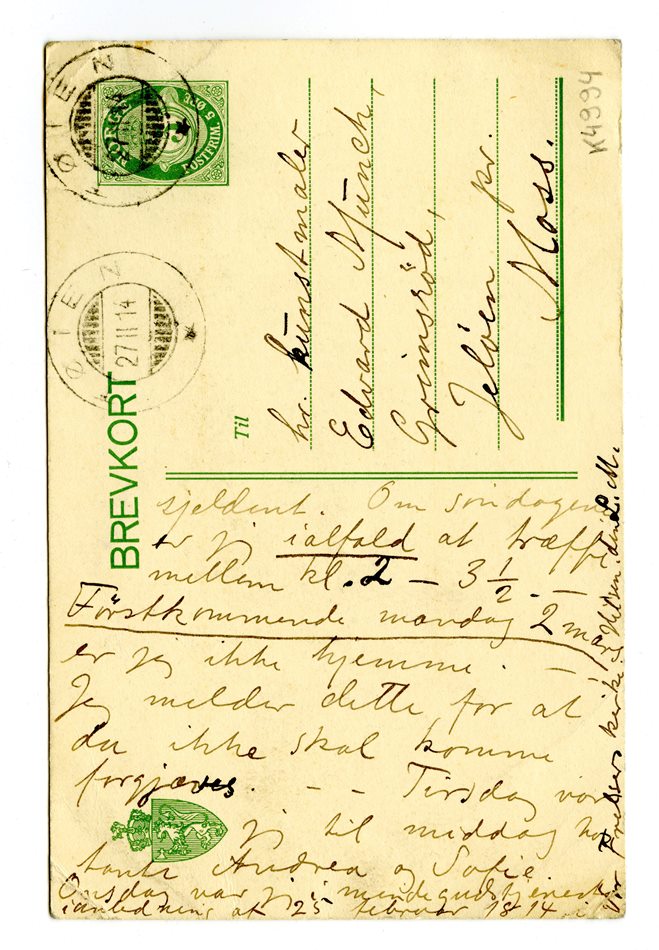 NORGE
POSTFRIM. 5 ØRE
TØIEN
TØIEN
27 II 14
BREVKORT
Til
hr. kunstmaler
Edvard Munch,
Grimsröd,
Jelöen pr.
Moss.
K4994
sjeldent. Om söndagene
er jeg ialfald at træffe
mellem kl. 2 – 3 1/2. –
Förstkommende mandag 2 mars
er jeg ikke hjemme. –
Jeg melder dette for at
du ikke skal komme
forgjæves. – – Tirsdag var
jeg til middag hos
tante Andrea og Sofie.
Onsdag var jeg i mindegudstjeneste
i anledning af 25 februar 1814 i
Vor Frelsers kirke. Hilsen. din L. M.